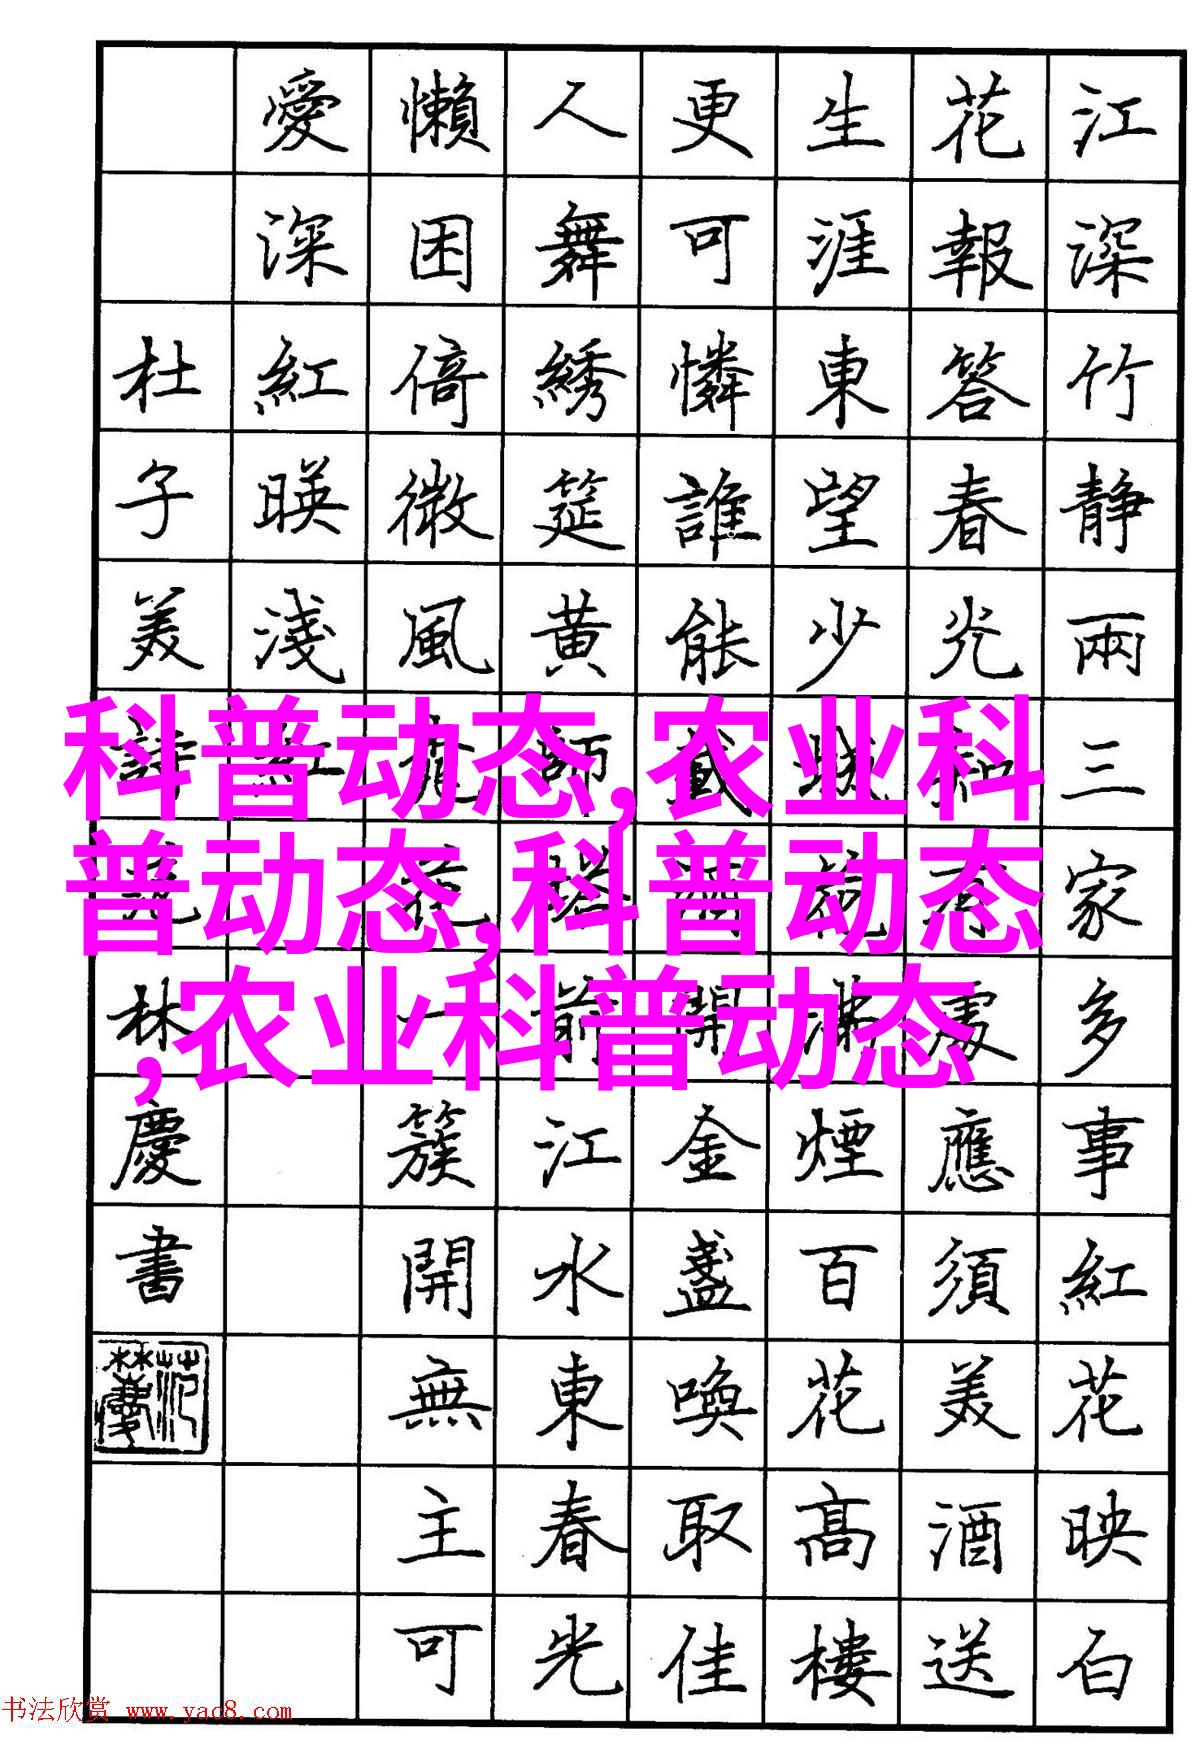 江深竹静兩三家多事紅花映白
花報答春光知有處應須美酒送
生涯東望少城花滿煙百花高樓
更可憐誰能載酒開金盞喚取佳
人舞綉筵黄師塔前江水東春光
懶困倚微風桃花一簇開無主可
愛深紅暎淺紅
杜子美詩范林慶書
科普动态,农业科
普动态,科普动态
,农业科普动态
书法欣赏 www.yac8.com